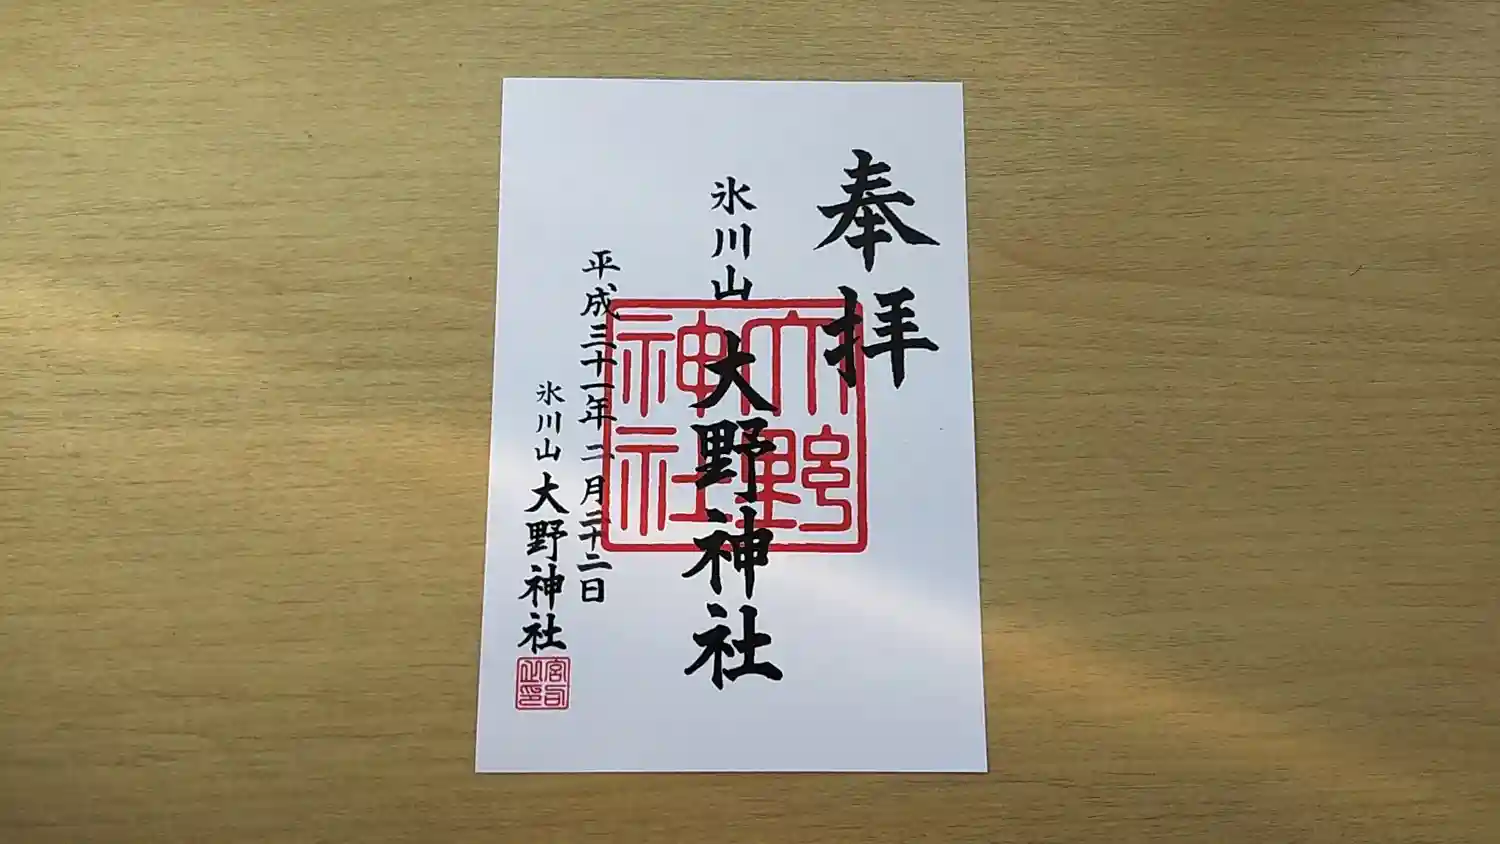 奉拝
氷川山 大野神社
大野
神社
平成三十一年二月二十二日
氷川山 大野神社
宮司
之印